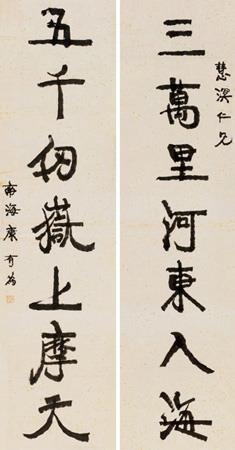 慧溟仁兄
三萬里河東入海
五千仞嶽上摩天
南海康有為